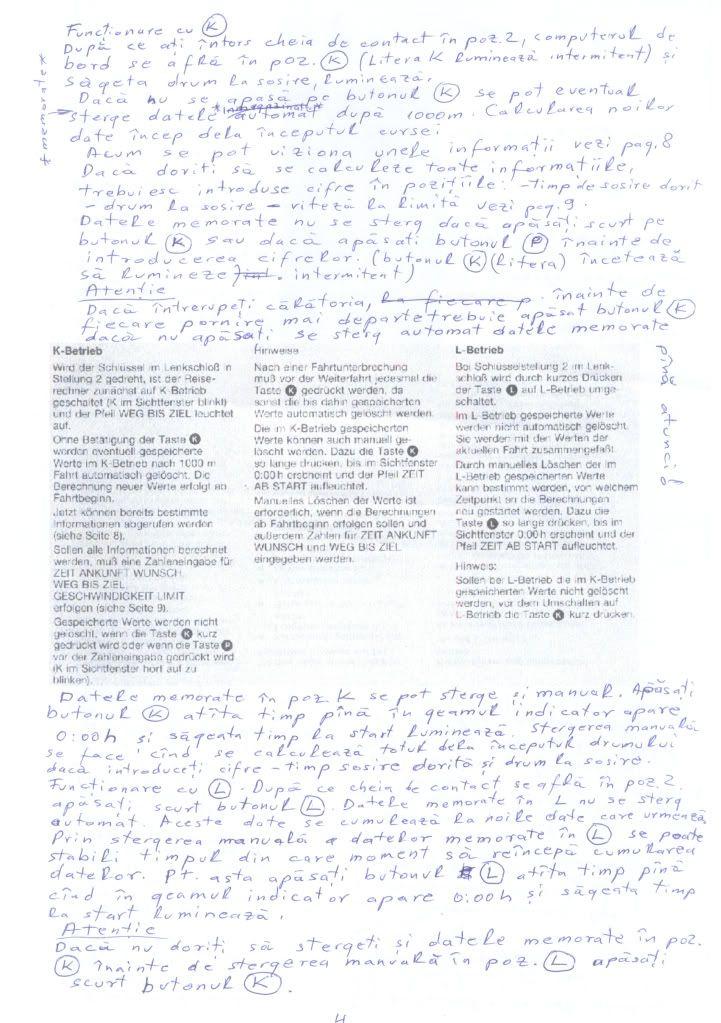 Funcționare cu K
După ce ați întors cheia de contact în poz. 2, computerul de
bord se află în poz. K (litera K luminează intermitent) și
săgeta drum la sosire, luminează.
Dacă nu se apasă pe butonul K se pot eventual
sterge datele automat după 1000m. Calcularea noilor
date încep dela începutul cursei
Acum se pot viziona unele informații vezi pag. 8
Dacă doriti să se calculeze toate informatiile,
trebuiesc introduse cifre în pozițiile: -timp de sosire dorit
- drum la sosire - viteză la limită vezi pag. 9.
Datele memorate nu se sterg dacă apăsați scurt pe
butonul K sau dacă apăsati butonul P înainte de
introducerea cifrelor. (butonul K (litera) încetează
să lumineze int. intermitent)
Atenție
Dacă întrerupeți călătoria, la fiecare p. înainte de
fiecare pornire mai departe trebuie apăsat butonul K
dacă nu apăsati se sterg automat datele memorate
pînă atunci
K-Betrieb
Wird der Schlüssel im Lenkschloß in
Stellung 2 gedreht, ist der Reise-
rechner zunächst auf K-Betrieb
geschaltet (K im Sichtfenster blinkt)
und der Pfeil WEG BIS ZIEL leuchtet
auf.
Ohne Betätigung der Taste K
werden eventuell gespeicherte
Werte im K-Betrieb nach 1000 m
Fahrt automatisch gelöscht. Die
Berechnung neuer Werte erfolgt ab
Fahrtbeginn.
Jetzt können bereits bestimmte
Informationen abgerufen werden
(siehe Seite 8).
Sollen alle Informationen berechnet
werden, muß eine Zahleneingabe für
ZEIT ANKUNFT WUNSCH,
WEG BIS ZIEL,
GESCHWINDIGKEIT LIMIT
erfolgen (siehe Seite 9).
Gespeicherte Werte werden nicht
gelöscht, wenn die Taste K kurz
gedrückt wird oder wenn die Taste P
vor der Zahleneingabe gedrückt wird
(K im Sichtfenster hört auf zu
blinken).
Hinweise
Nach einer Fahrtunterbrechung
muß vor der Weiterfahrt jedesmal die
Taste K gedrückt werden, da
sonst die bis dahin gespeicherten
Werte automatisch gelöscht werden.
Die im K-Betrieb gespeicherten
Werte können auch manuell ge-
löscht werden. Dazu die Taste K
so lange drücken, bis im Sichtfenster
0:00 h erscheint und der Pfeil ZEIT
AB START aufleuchtet.
Manuelles Löschen der Werte ist
erforderlich, wenn die Berechnungen
ab Fahrtbeginn erfolgen sollen und
außerdem Zahlen für ZEIT ANKUNFT
WUNSCH und WEG BIS ZIEL
eingegeben werden.
L-Betrieb
Bei Schlüsselstellung 2 im Lenk-
schloß wird durch kurzes Drücken
der Taste L auf L-Betrieb umge-
schaltet.
Im L-Betrieb gespeicherte Werte
werden nicht automatisch gelöscht.
Sie werden mit den Werten der
aktuellen Fahrt zusammengefaßt.
Durch manuelles Löschen der im
L-Betrieb gespeicherten Werte
kann bestimmt werden, von welchem
Zeitpunkt an die Berechnungen
neu gestartet werden. Dazu die
Taste L so lange drücken, bis im
Sichtfenster 0:00 h erscheint und der
Pfeil ZEIT AB START aufleuchtet.
Hinweis:
Sollen bei L-Betrieb die im K-Betrieb
gespeicherten Werte nicht gelöscht
werden, vor dem Umschalten auf
L-Betrieb die Taste K kurz drücken.
Datele memorate în poz. K se pot sterge și manual. Apăsați
butonul K atîta timp pînă în geamul indicator apare
0:00h și săgeata timp la start luminează. Stergerea manuală
se face cînd se calculează totul dela începutul drumului
dacă introduceți cifre - timp sosire dorită și drum la sosire.
Funcționare cu L. După ce cheia de contact se află în poz. 2
apăsati scurt butonul L. Datele memorate în L nu se sterg
automat. Aceste date se cumulează la noile date care urmează
Prin stergerea manuală a datelor memorate în L se poate
stabili timpul din care moment să reînceapă cumularea
datelor. Pt. asta apăsați butonul L atîta timp pînă
cînd în geamul indicator apare 0:00h și săgeata timp
la start luminează.
Atenție
Dacă nu doriți să stergeți și datele memorate în poz.
K înainte de stergerea manuală în poz. L apăsați
scurt butonul K.
4